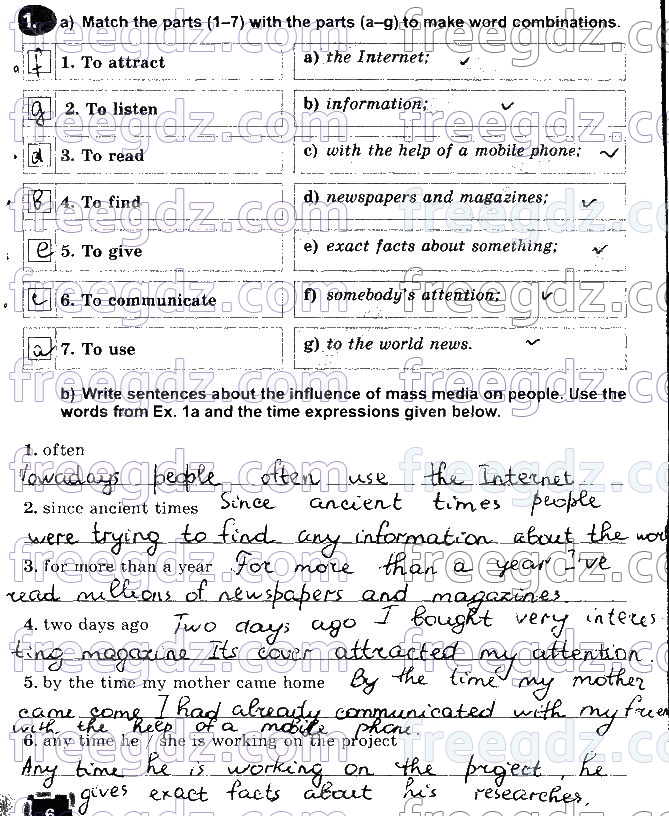 1. a) Match the parts (1–7) with the parts (a–g) to make word combinations.
f 1. To attract a) the Internet;
g 2. To listen b) information;
d 3. To read c) with the help of a mobile phone;
B 4. To find d) newspapers and magazines;
e 5. To give e) exact facts about something;
c 6. To communicate f) somebody's attention;
a 7. To use g) to the world news.
b) Write sentences about the influence of mass media on people. Use the
words from Ex. 1a and the time expressions given below.
1. often
Nowadays people often use the Internet
2. since ancient times Since ancient times people
were trying to find any information about the wor
3. for more than a year For more than a year I've
read millions of newspapers and magazines.
4. two days ago Two days ago I bought very interes
ting magazine Its cover attracted my attention.
5. by the time my mother came home By the time my mother
came come I had already communicated with my frien
with the help of a mobile phone.
6. any time he / she is working on the project
Any time he is working on the project, he
gives exact facts about his researches.
6
freegdz.com